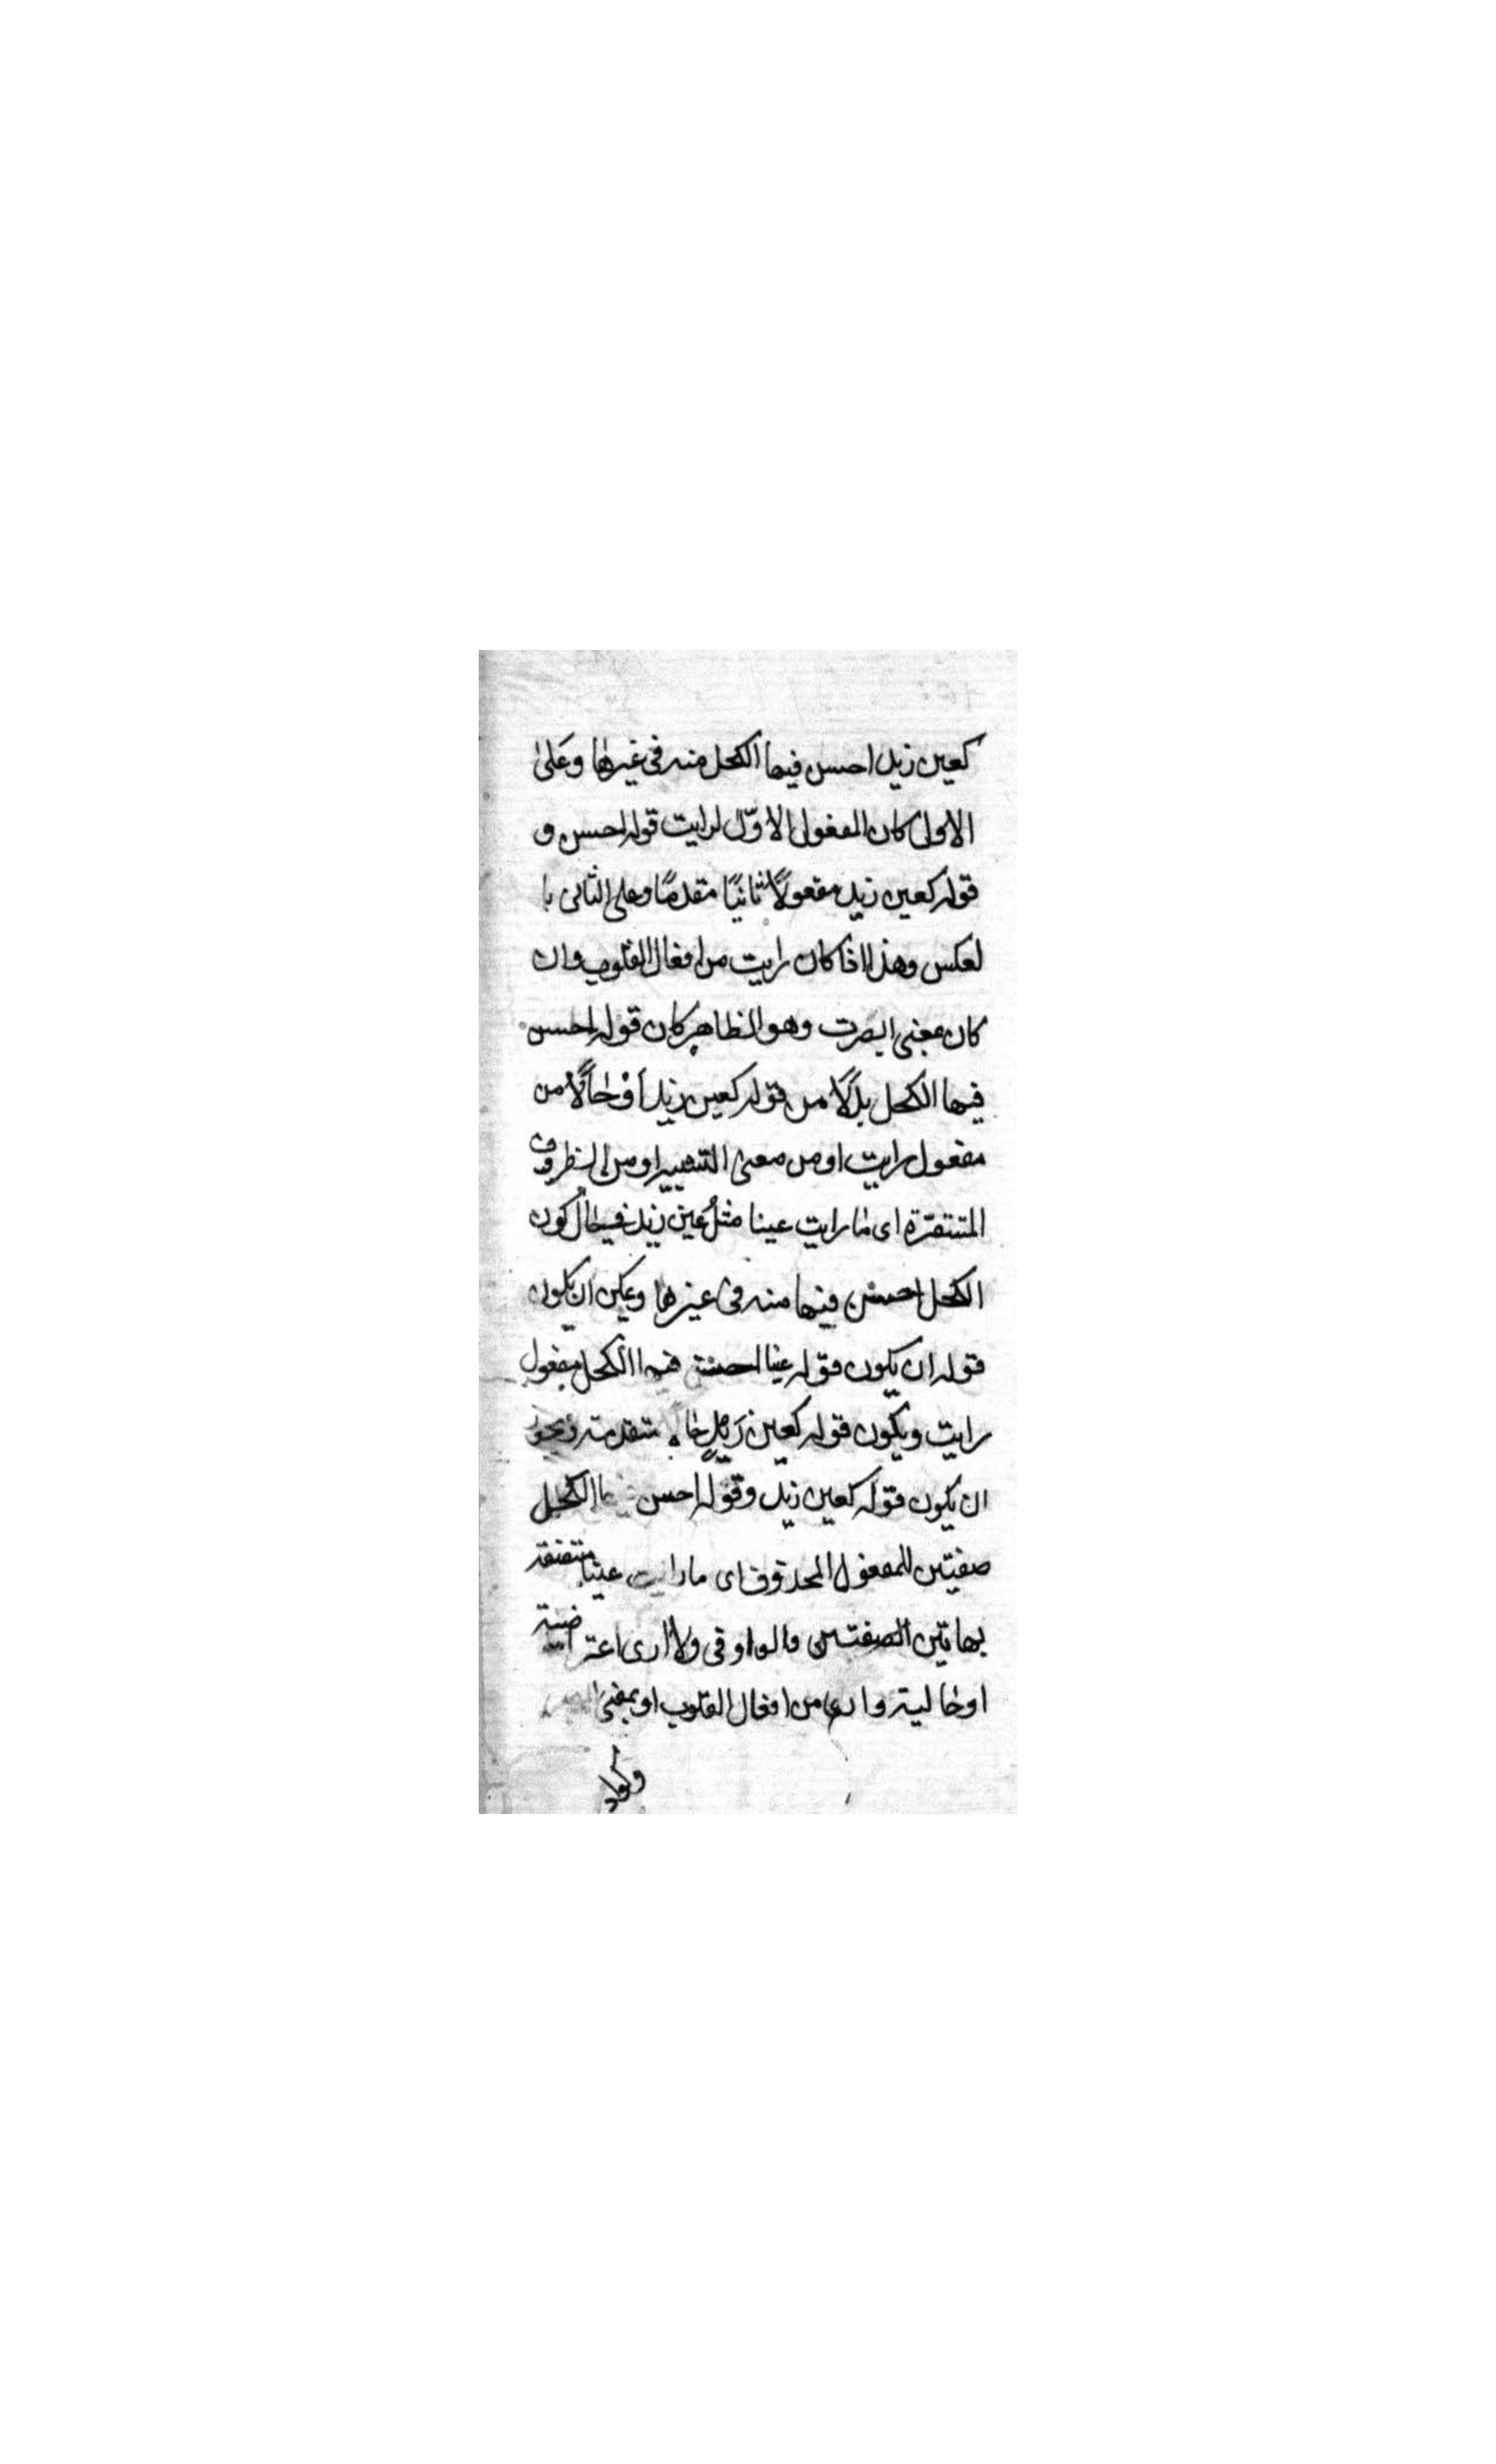 كعين زيد احسن فيها الكحل منه فى غيرها وعلى
الاولى كان المفعول الاوّل لرايت قوله احسن و
قوله كعين زيد مفعولًا ثانيًا مقدمًا وعلى الثانى با
لعكس وهذا اذا كان رايت من افعال القلوب وان
كان بمعنى ابصرت وهو الظاهر كان قوله احسن
فيها الكحل بدلًا من قوله كعين زيد اوْ حالًا من
مفعول رايت او من معنى التشبيه او من الظروف
المستقرّة اى ما رايت عينا مثلُ عين زيد فيحال كون
الكحل احسن فيها منه فى غيرها ويمكن ان يكون
قوله ان يكون قوله عينا احسن فيها الكحل مفعول
رايت ويكون قوله كعين زيدٍ حالا متقدمة ويجوز
ان يكون قوله كعين زيد وقوله احسن فيها الكحل
صفتين للمفعول المحذوف اى ما رايت عينا متصفة
بهاتين الصفتين والواو فى ولا ارى اعتراضية
او حالية وارى من افعال القلوب او بمعنى